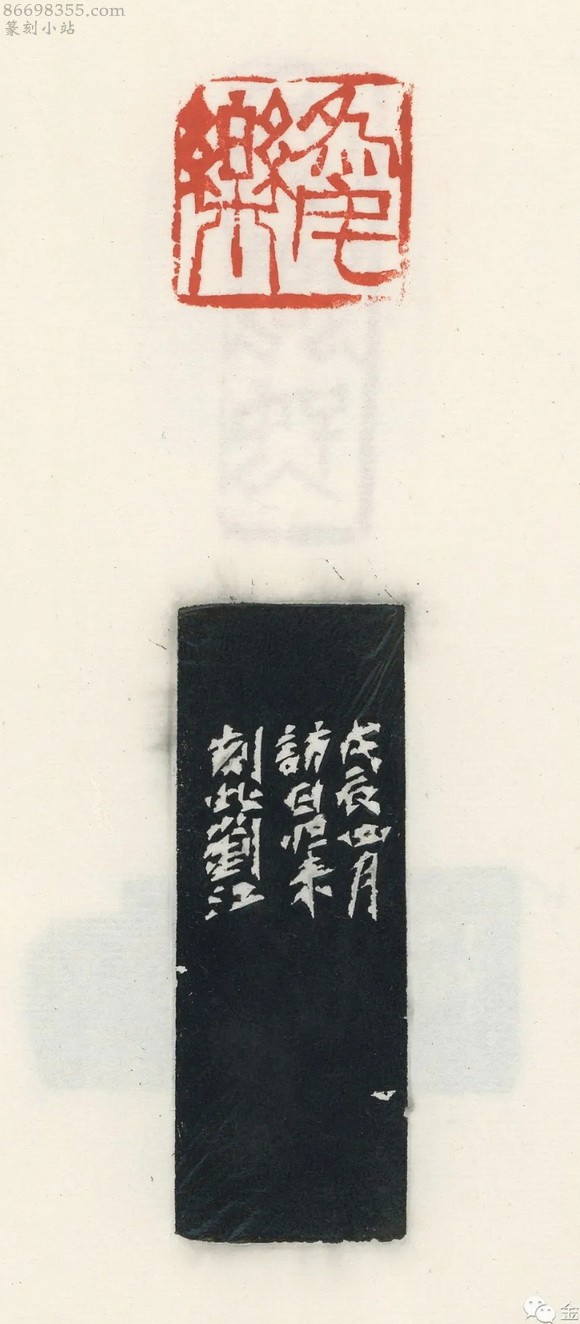 86698355.com
篆刻小站
樂
戊辰四月
訪日归来
刻此劉江
金